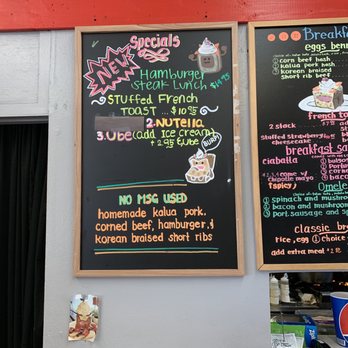 Specials
NEW
Hamburger
steak Lunch $14.95
stuffed French
Toast ... $10.95
2. Nutella
3. Ube (add Ice cream
+ 2.95 Ube
BURP
NO MSG USED
homemade kalua pork,
corned beef, hamburger, &
korean braised short ribs
Breakfa
eggs bene
corn beef hash
kalua pork hash
korean braised
short rib beef
french to
2 stack
stuffed strawberry
cheesecake
breakfast sa
ciabatta
come w/
chipotle mayo
(spicy)
Omele
spinach and mushro
bacon and mushroom
port. sausage and sp
classic br
rice, egg choice
add extra meat